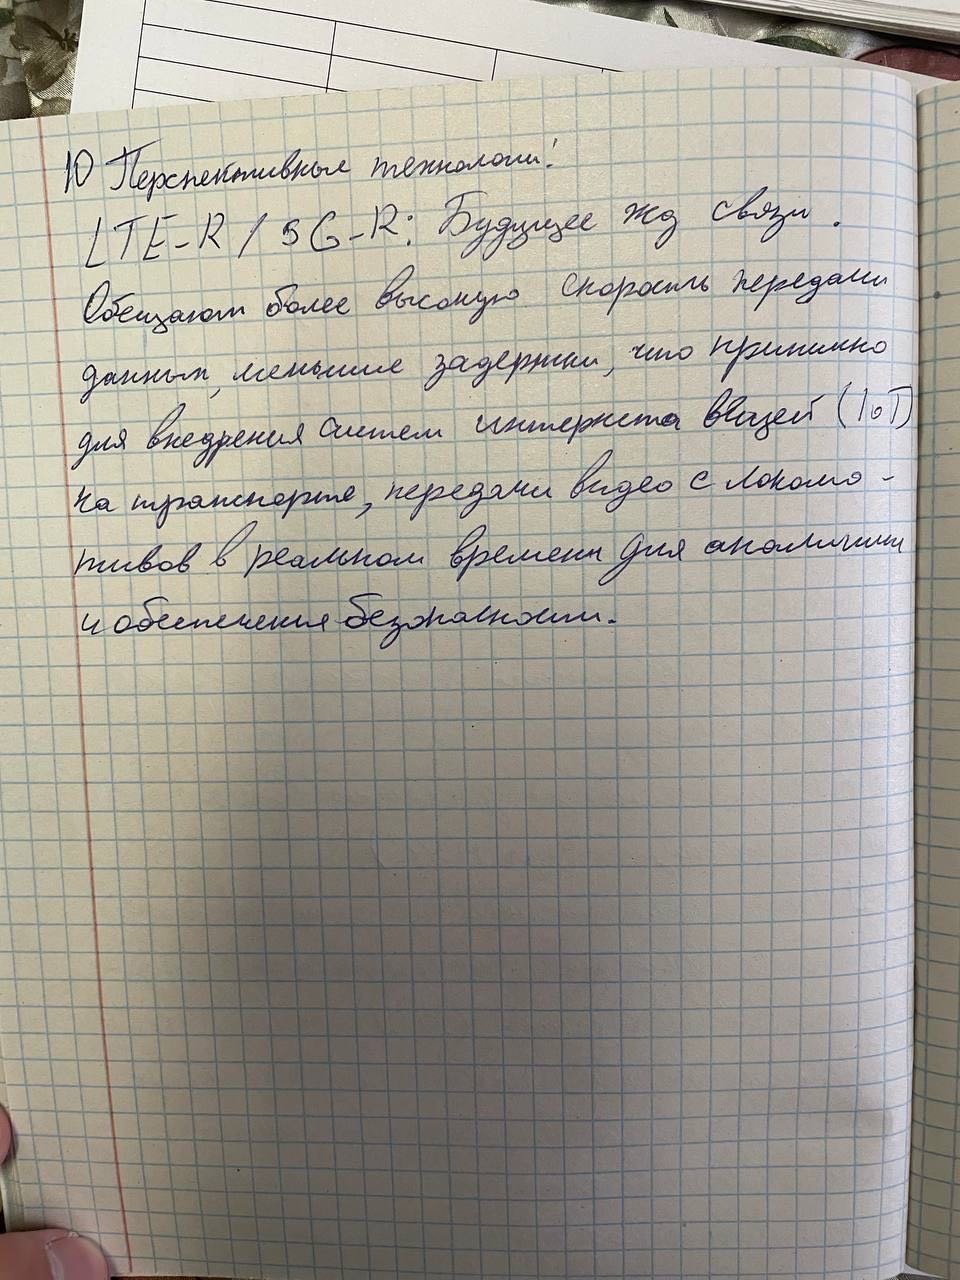 10 Перспективные технологии:
LTE-R / 5G-R: Будущее жд связи.
Обещают более высокую скорость передачи
данных, меньшие задержки, что
для внедрения систем интернета вещей (IoT)
на транспорте, передачи видео с локомо-
тивов в реальном времени для аналитики
и обеспечения безопасности.